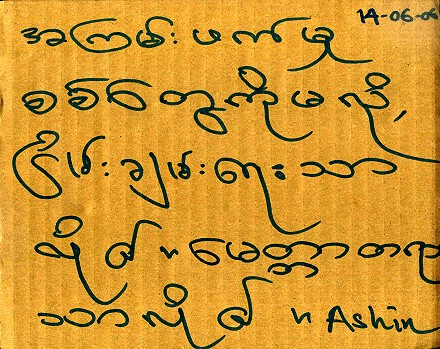 14-06-06
အကြမ်းဖက်မှု
စစ်တွေကိုမလို,
ငြိမ်းချမ်းရေးသာ
လို၏။ မေတ္တာတရား
သာလို၏ ။ Ashin